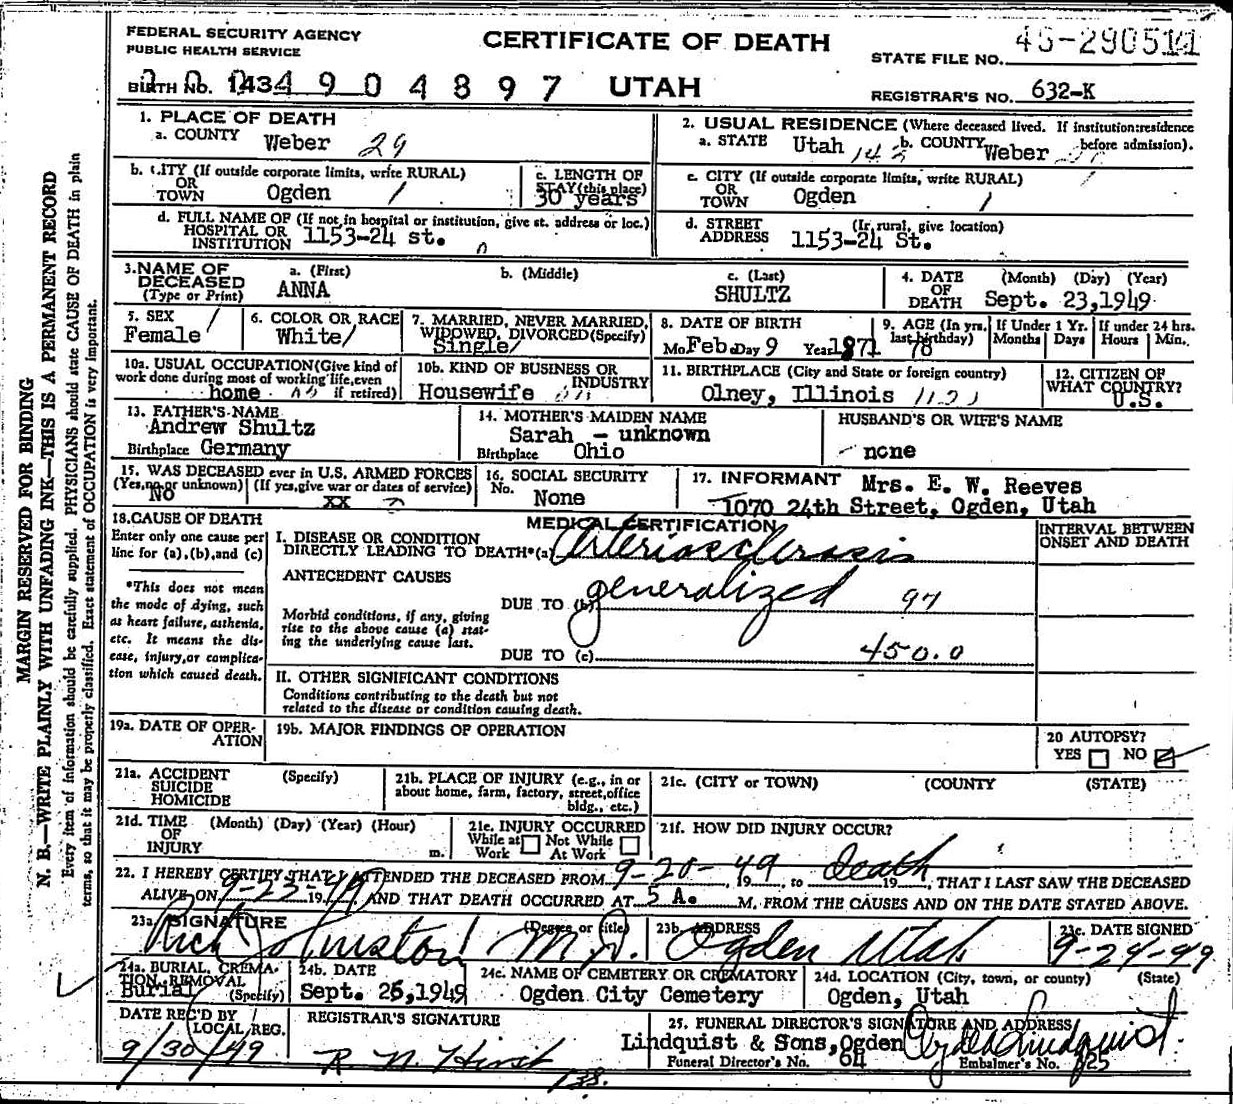 FEDERAL SECURITY AGENCY
PUBLIC HEALTH SERVICE
CERTIFICATE OF DEATH
STATE FILE NO.
BIRTH NO. 1434 9 0 4 8 9 7 UTAH
REGISTRAR'S NO. 632-K
1. PLACE OF DEATH
a. COUNTY Weber 29
2. USUAL RESIDENCE (Where deceased lived. If institution:residence before admission).
a. STATE Utah b. COUNTY Weber
b. CITY (If outside corporate limits, write RURAL)
OR
TOWN Ogden 1
c. LENGTH OF
STAY (this place)
30 years
c. CITY (If outside corporate limits, write RURAL)
OR
TOWN Ogden 1
d. FULL NAME OF (If not in hospital or institution, give st. address or loc.)
HOSPITAL OR
INSTITUTION 1153-24 st. 0
d. STREET (If rural, give location)
ADDRESS 1153-24 St.
3. NAME OF DECEASED
(Type or Print)
a. (First)
ANNA
b. (Middle)
c. (Last)
SHULTZ
4. DATE OF DEATH
(Month) (Day) (Year)
Sept. 23,1949
5. SEX
Female
6. COLOR OR RACE
White
7. MARRIED, NEVER MARRIED,
WIDOWED, DIVORCED(Specify)
Single
8. DATE OF BIRTH
Mo Feb. Day 9 Year 1871
9. AGE (In yrs. last birthday)
78
If Under 1 Yr.
Months Days
If under 24 hrs.
Hours Min.
10a. USUAL OCCUPATION(Give kind of
work done during most of working life,even
if retired)
home
10b. KIND OF BUSINESS OR
INDUSTRY
Housewife
11. BIRTHPLACE (City and State or foreign country)
Olney, Illinois
12. CITIZEN OF
WHAT COUNTRY?
U.S.
13. FATHER'S NAME
Andrew Shultz
Birthplace Germany
14. MOTHER'S MAIDEN NAME
Sarah - unknown
Birthplace Ohio
HUSBAND'S OR WIFE'S NAME
none
15. WAS DECEASED ever in U.S. ARMED FORCES
(Yes,no,or unknown) (If yes,give war or dates of service)
No xx
16. SOCIAL SECURITY
No. None
17. INFORMANT Mrs. E. W. Reeves
1070 24th Street, Ogden, Utah
18.CAUSE OF DEATH
Enter only one cause per
line for (a),(b),and (c)
*This does not mean
the mode of dying, such
as heart failure, asthenia,
etc. It means the dis-
ease, injury,or complica-
tion which caused death.
MEDICAL CERTIFICATION
INTERVAL BETWEEN
ONSET AND DEATH
I. DISEASE OR CONDITION
DIRECTLY LEADING TO DEATH*(a) Arteriosclerosis
ANTECEDENT CAUSES
DUE TO (b) generalized 97
Morbid conditions, if any, giving
rise to the above cause (a) stat-
ing the underlying cause last.
DUE TO (c) 450.0
II. OTHER SIGNIFICANT CONDITIONS
Conditions contributing to the death but not
related to the disease or condition causing death.
19a. DATE OF OPER-
ATION
19b. MAJOR FINDINGS OF OPERATION
20 AUTOPSY?
YES NO
21a. ACCIDENT
SUICIDE
HOMICIDE
(Specify)
21b. PLACE OF INJURY (e.g., in or
about home, farm, factory, street,office
bldg., etc.)
21c. (CITY or TOWN) (COUNTY) (STATE)
21d. TIME
OF
INJURY
(Month) (Day) (Year) (Hour)
m.
21e. INJURY OCCURRED
While at Work Not While At Work
21f. HOW DID INJURY OCCUR?
22. I HEREBY CERTIFY THAT I ATTENDED THE DECEASED FROM 9-20-49, 19, to death 19, THAT I LAST SAW THE DECEASED
ALIVE ON 9-23-49 19, AND THAT DEATH OCCURRED AT 5 A. M, FROM THE CAUSES AND ON THE DATE STATED ABOVE.
23a. SIGNATURE (Degree or title)
M.D.
23b. ADDRESS
Ogden Utah
23c. DATE SIGNED
9-24-49
24a. BURIAL, CREMA-
TION, REMOVAL
(Specify)
Burial
24b. DATE
Sept. 26,1949
24c. NAME OF CEMETERY OR CREMATORY
Ogden City Cemetery
24d. LOCATION (City, town, or county) (State)
Ogden, Utah
DATE REC'D BY
LOCAL REG.
9/30/49
REGISTRAR'S SIGNATURE
R N Hirst
138.
25. FUNERAL DIRECTOR'S SIGNATURE AND ADDRESS
Lindquist & Sons,Ogden Clyde Lindquist
Funeral Director's No. 64 Embalmer's No.
MARGIN RESERVED FOR BINDING
N. B.—WRITE PLAINLY WITH UNFADING INK—THIS IS A PERMANENT RECORD
Every item of information should be carefully supplied. PHYSICIANS should state CAUSE OF DEATH in plain
terms, so that it may be properly classified. Exact statement of OCCUPATION is very important.